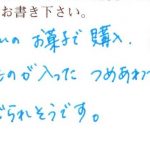 お書き下さい。
いの お菓子で購入.
ものが入った つめあわ
ぜられそうです。